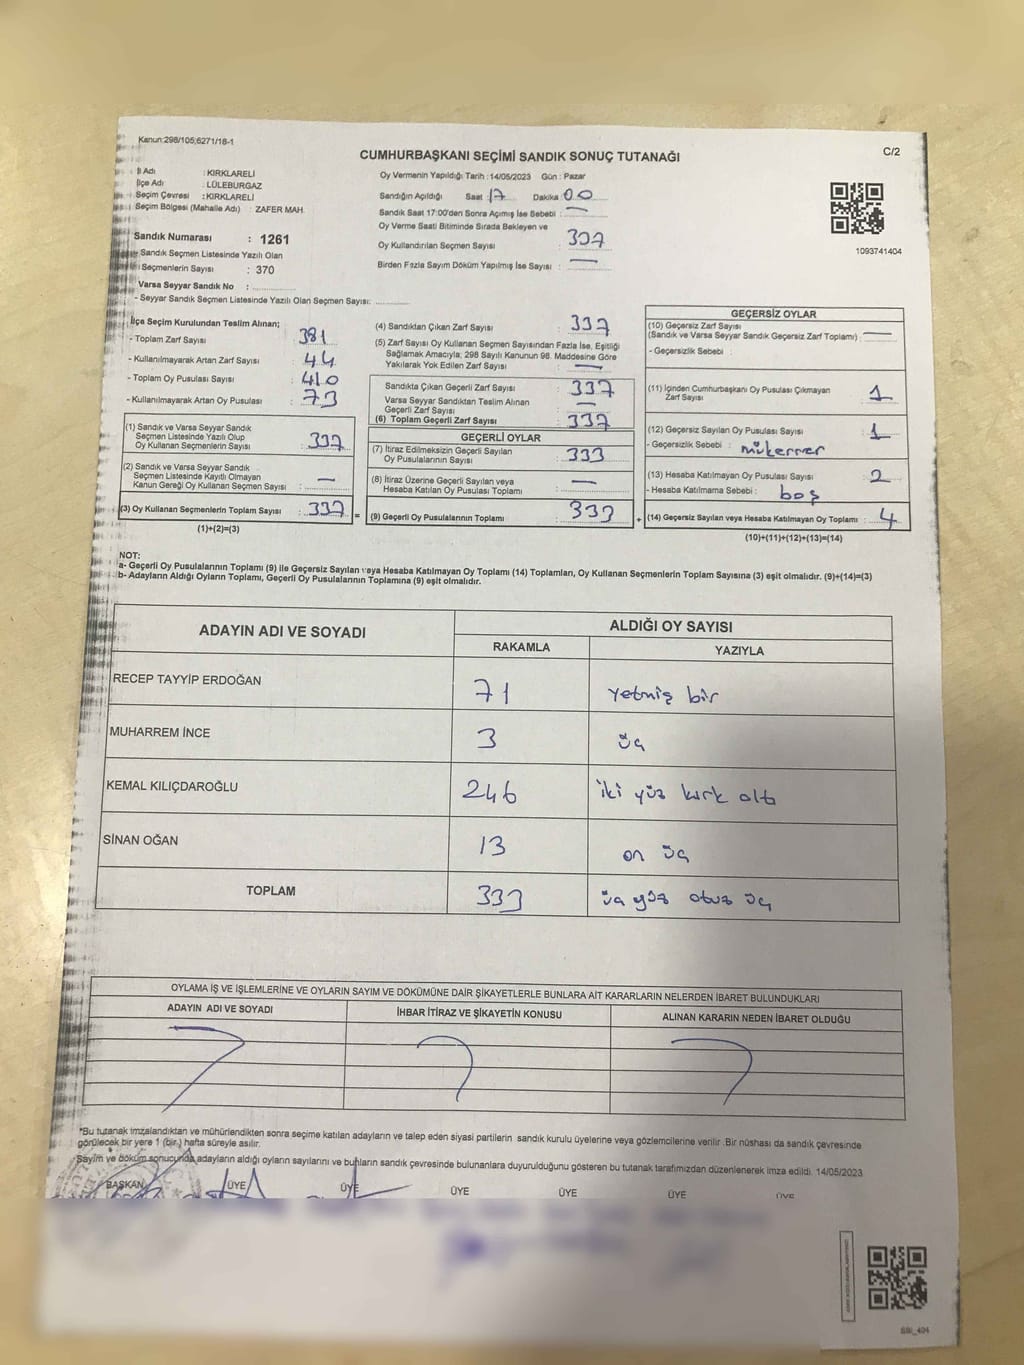 Kanun:298/105;6271/18-1
C/2
CUMHURBAŞKANI SEÇİMİ SANDIK SONUÇ TUTANAĞI
İl Adı : KIRKLARELİ
İlçe Adı : LÜLEBURGAZ
Seçim Çevresi : KIRKLARELİ
Seçim Bölgesi (Mahalle Adı) : ZAFER MAH.
Sandık Numarası : 1261
Sandık Seçmen Listesinde Yazılı Olan
Seçmenlerin Sayısı : 370
Varsa Seyyar Sandık No :
- Seyyar Sandık Seçmen Listesinde Yazılı Olan Seçmen Sayısı:
Oy Vermenin Yapıldığı Tarih : 14/05/2023 Gün : Pazar
Sandığın Açıldığı Saat : 17 Dakika 00
Sandık Saat 17:00'den Sonra Açımış İse Sebebi : —
Oy Verme Saati Bitiminde Sırada Bekleyen ve
Oy Kullandırılan Seçmen Sayısı : 337
Birden Fazla Sayım Döküm Yapılmış İse Sayısı : —
1093741404
İlçe Seçim Kurulundan Teslim Alınan;
- Toplam Zarf Sayısı : 381
- Kullanılmayarak Artan Zarf Sayısı : 44
- Toplam Oy Pusulası Sayısı : 410
- Kullanılmayarak Artan Oy Pusulası : 73
(1) Sandık ve Varsa Seyyar Sandık
Seçmen Listesinde Yazılı Olup
Oy Kullanan Seçmenlerin Sayısı : 337
(2) Sandık ve Varsa Seyyar Sandık
Seçmen Listesinde Kayıtlı Olmayan
Kanun Gereği Oy Kullanan Seçmen Sayısı : —
(3) Oy Kullanan Seçmenlerin Toplam Sayısı : 337 =
(1)+(2)=(3)
(4) Sandıktan Çıkan Zarf Sayısı : 337
(5) Zarf Sayısı Oy Kullanan Seçmen Sayısından Fazla İse, Eşitliği
Sağlamak Amacıyla; 298 Sayılı Kanunun 98. Maddesine Göre
Yakılarak Yok Edilen Zarf Sayısı : —
Sandıkta Çıkan Geçerli Zarf Sayısı : 337
Varsa Seyyar Sandıktan Teslim Alınan
Geçerli Zarf Sayısı : —
(6) Toplam Geçerli Zarf Sayısı : 337
GEÇERLİ OYLAR
(7) İtiraz Edilmeksizin Geçerli Sayılan
Oy Pusulalarının Sayısı : 333
(8) İtiraz Üzerine Geçerli Sayılan veya
Hesaba Katılan Oy Pusulaları Toplamı : —
(9) Geçerli Oy Pusulalarının Toplamı : 333 +
GEÇERSİZ OYLAR
(10) Geçersiz Zarf Sayısı
(Sandık ve Varsa Seyyar Sandık Geçersiz Zarf Toplamı) : —
- Geçersizlik Sebebi :
(11) İçinden Cumhurbaşkanı Oy Pusulası Çıkmayan
Zarf Sayısı : 1
(12) Geçersiz Sayılan Oy Pusulası Sayısı : 1
- Geçersizlik Sebebi : mükerrer
(13) Hesaba Katılmayan Oy Pusulası Sayısı : 2
- Hesaba Katılmama Sebebi : boş
(14) Geçersiz Sayılan veya Hesaba Katılmayan Oy Toplamı : 4
(10)+(11)+(12)+(13)=(14)
NOT:
a- Geçerli Oy Pusulalarının Toplamı (9) ile Geçersiz Sayılan veya Hesaba Katılmayan Oy Toplamı (14) Toplamları, Oy Kullanan Seçmenlerin Toplam Sayısına (3) eşit olmalıdır. (9)+(14)=(3)
b- Adayların Aldığı Oyların Toplamı, Geçerli Oy Pusulalarının Toplamına (9) eşit olmalıdır.
ADAYIN ADI VE SOYADI
ALDIĞI OY SAYISI
RAKAMLA YAZIYLA
RECEP TAYYİP ERDOĞAN 71 yetmiş bir
MUHARREM İNCE 3 üç
KEMAL KILIÇDAROĞLU 246 iki yüz kırk altı
SİNAN OĞAN 13 on üç
TOPLAM 333 üç yüz otuz üç
OYLAMA İŞ VE İŞLEMLERİNE VE OYLARIN SAYIM VE DÖKÜMÜNE DAİR ŞİKAYETLERLE BUNLARA AİT KARARLARIN NELERDEN İBARET BULUNDUKLARI
ADAYIN ADI VE SOYADI İHBAR İTİRAZ VE ŞİKAYETİN KONUSU ALINAN KARARIN NEDEN İBARET OLDUĞU
*Bu tutanak imzalandıktan ve mühürlendikten sonra seçime katılan adayların ve talep eden siyasi partilerin sandık kurulu üyelerine veya gözlemcilerine verilir. Bir nüshası da sandık çevresinde
görülecek bir yere 1 (bir) hafta süreyle asılır.
Sayım ve döküm sonucunda adayların aldığı oyların sayılarını ve bunların sandık çevresinde bulunanlara duyurulduğunu gösteren bu tutanak tarafımızdan düzenlenerek imza edildi. 14/05/2023
BAŞKAN ÜYE ÜYE ÜYE ÜYE ÜYE ÜYE